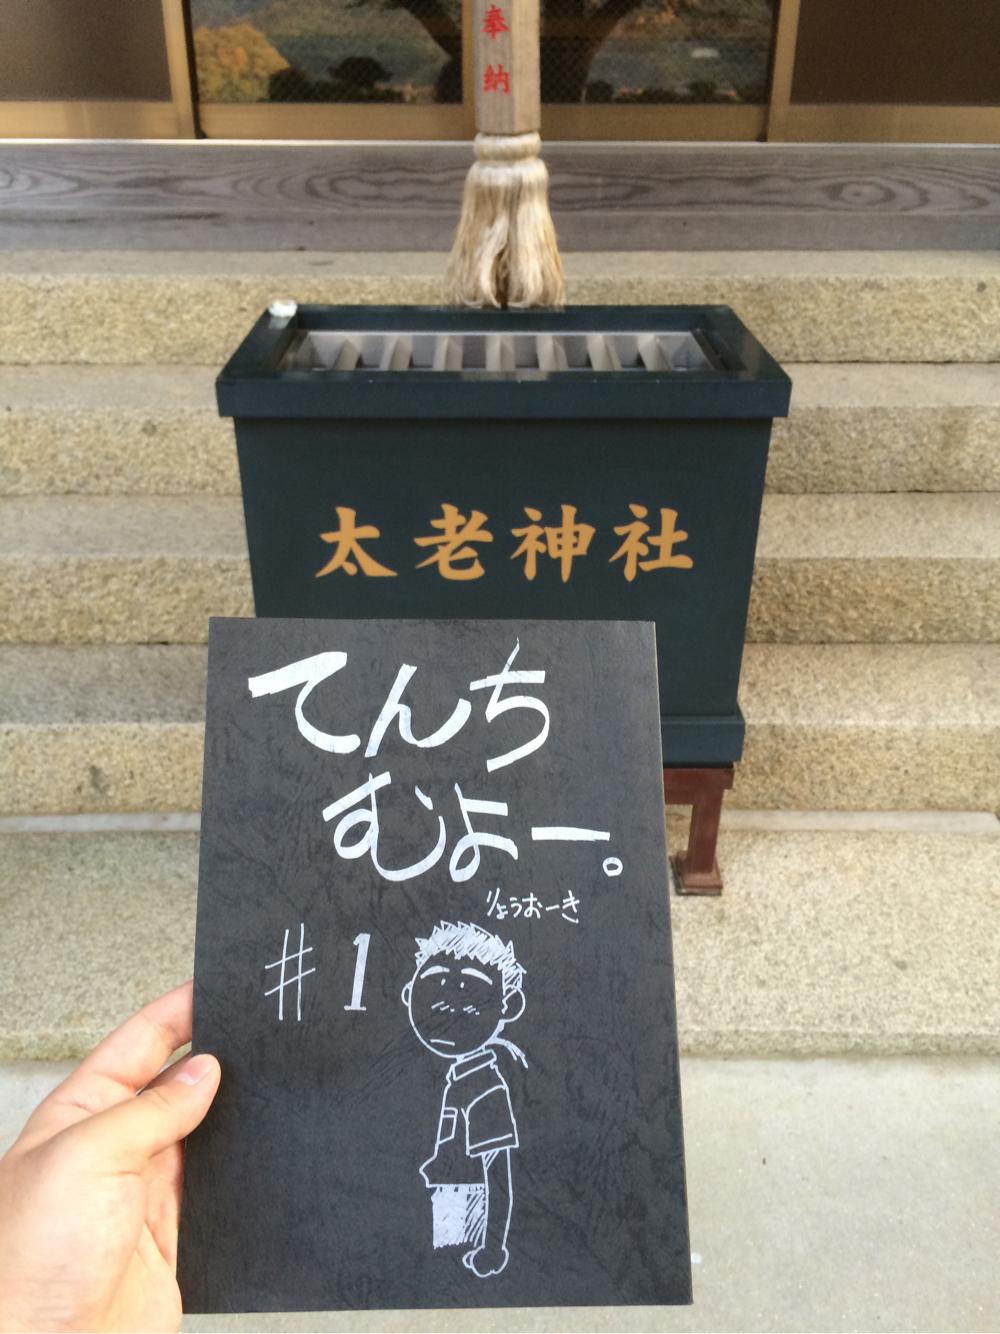 奉納
太老神社
てんち
むよー。
りょうおーき
#1